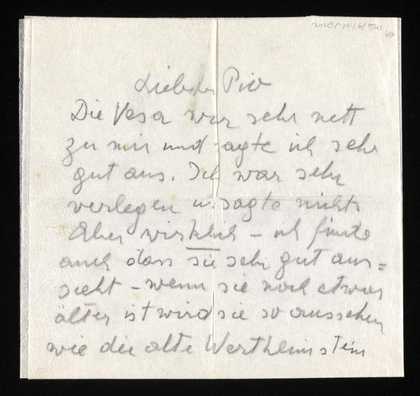 Liebster Pio
Die Vesa war sehr nett
zu mir und sagte ich sehe
gut aus. Ich war sehr
verlegen u. sagte nichts
Aber wirklich – ich finde
auch dass sie sehr gut aus=
sieht – wenn sie noch etwas
älter ist wird sie so aussehen
wie die alte Wertheimstein